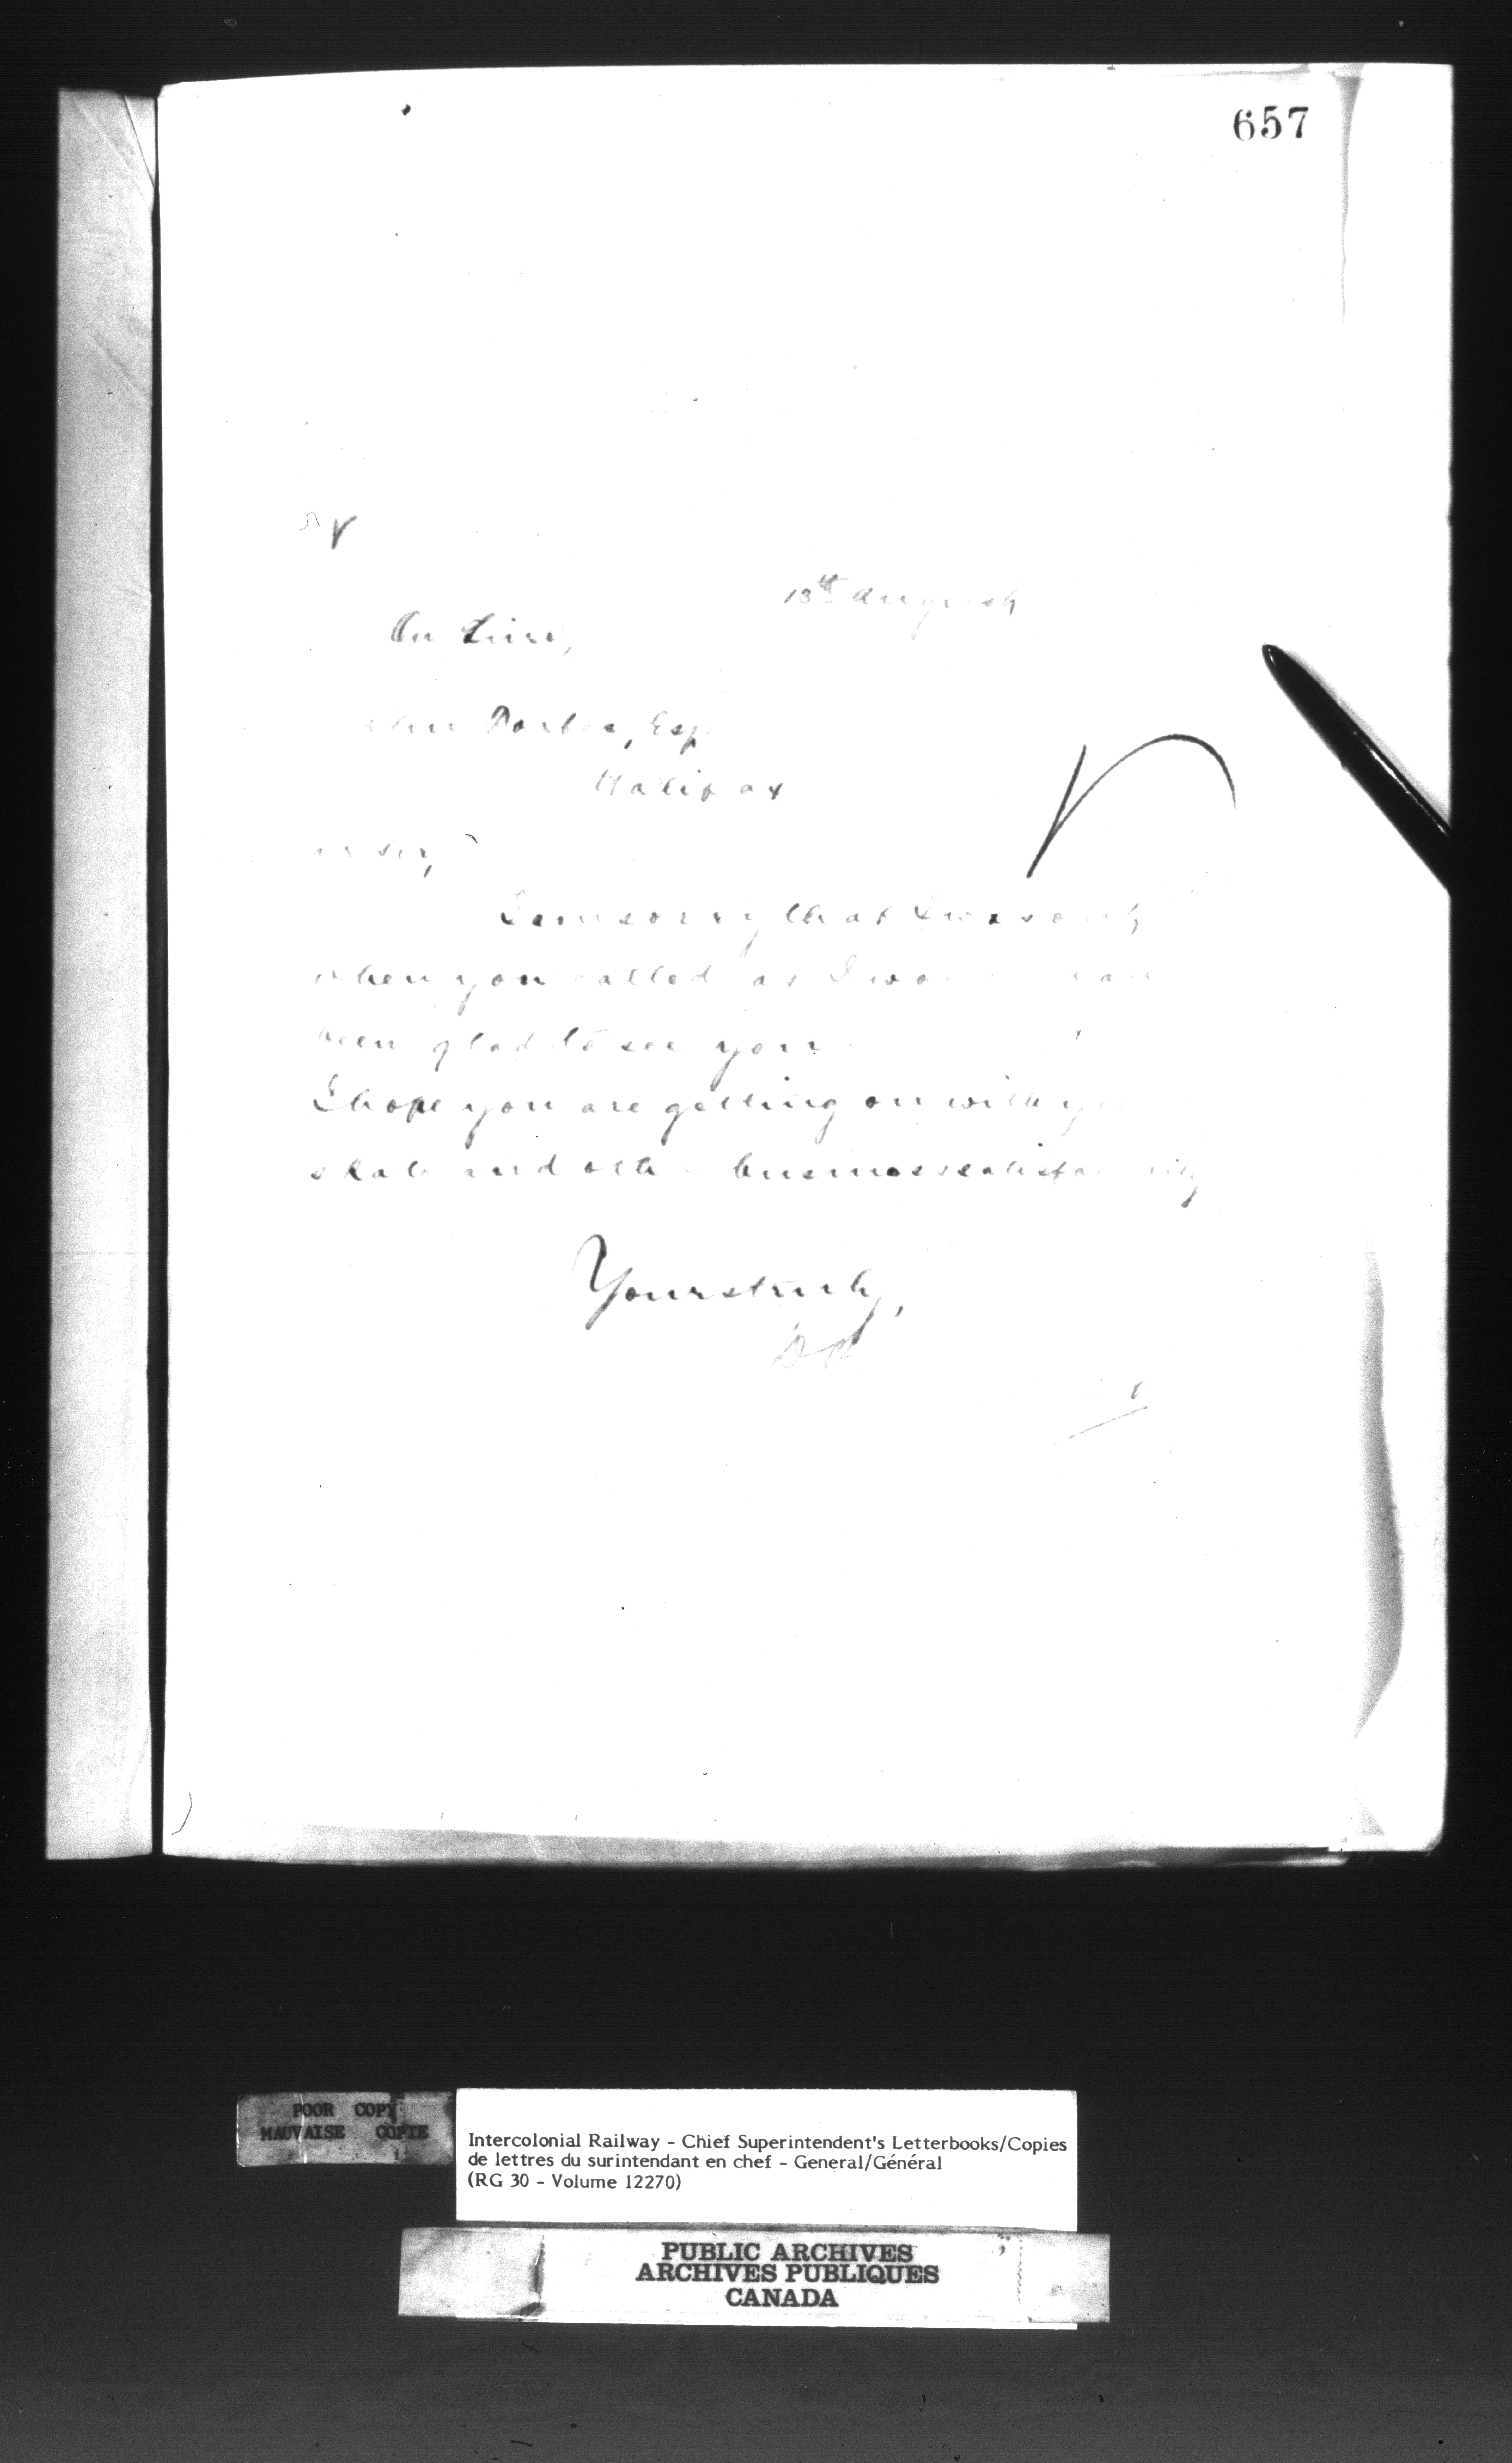 657
13th August
On Line,
Forbes, Esq
Halifax
sir,
I am sorry that I was out
when you called as I
been glad to see you
I hope you are getting on with
skate and other business satisfactorily
Yours truly,
POOR COPY
MAUVAISE COPIE
Intercolonial Railway - Chief Superintendent's Letterbooks/Copies
de lettres du surintendant en chef - General/Général
(RG 30 - Volume 12270)
PUBLIC ARCHIVES
ARCHIVES PUBLIQUES
CANADA